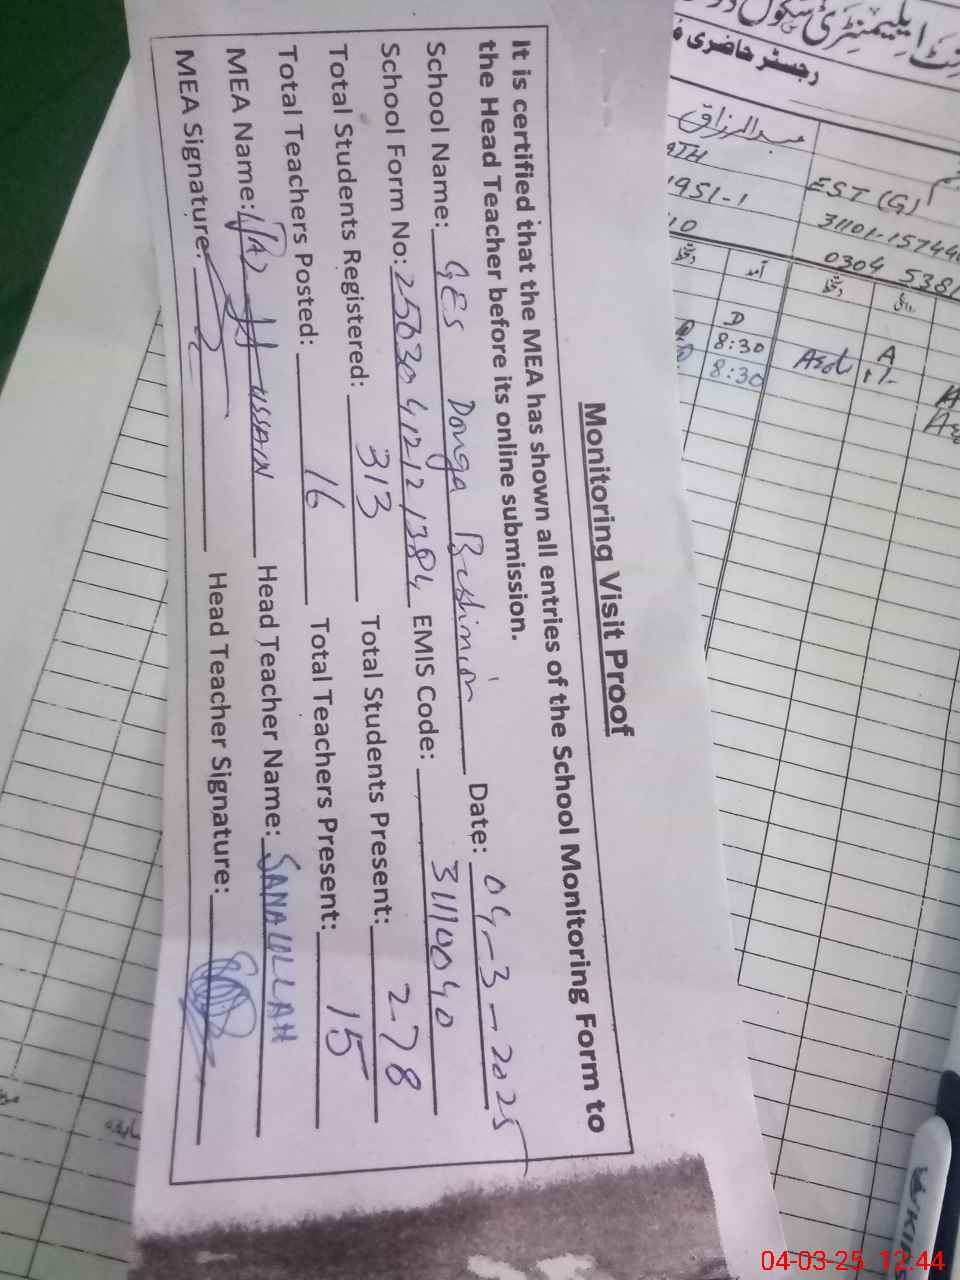 Monitoring Visit Proof
It is certified that the MEA has shown all entries of the School Monitoring Form to
the Head Teacher before its online submission.
School Name: GES Donga Date: 04-3-2025
School Form No: 25030412121384 EMIS Code: 31110040
Total Students Registered: 313 Total Students Present: 278
Total Teachers Posted: 16 Total Teachers Present: 15
MEA Name: Hussain Head Teacher Name: SANAULLAH
MEA Signature: Head Teacher Signature:
رجسٹر حاضری
عبدالرزاق
EST (G)
1951-1
31101-15744
10
0304 5381
آمد
D
8:30
A
8:30
04-03-25 12:44